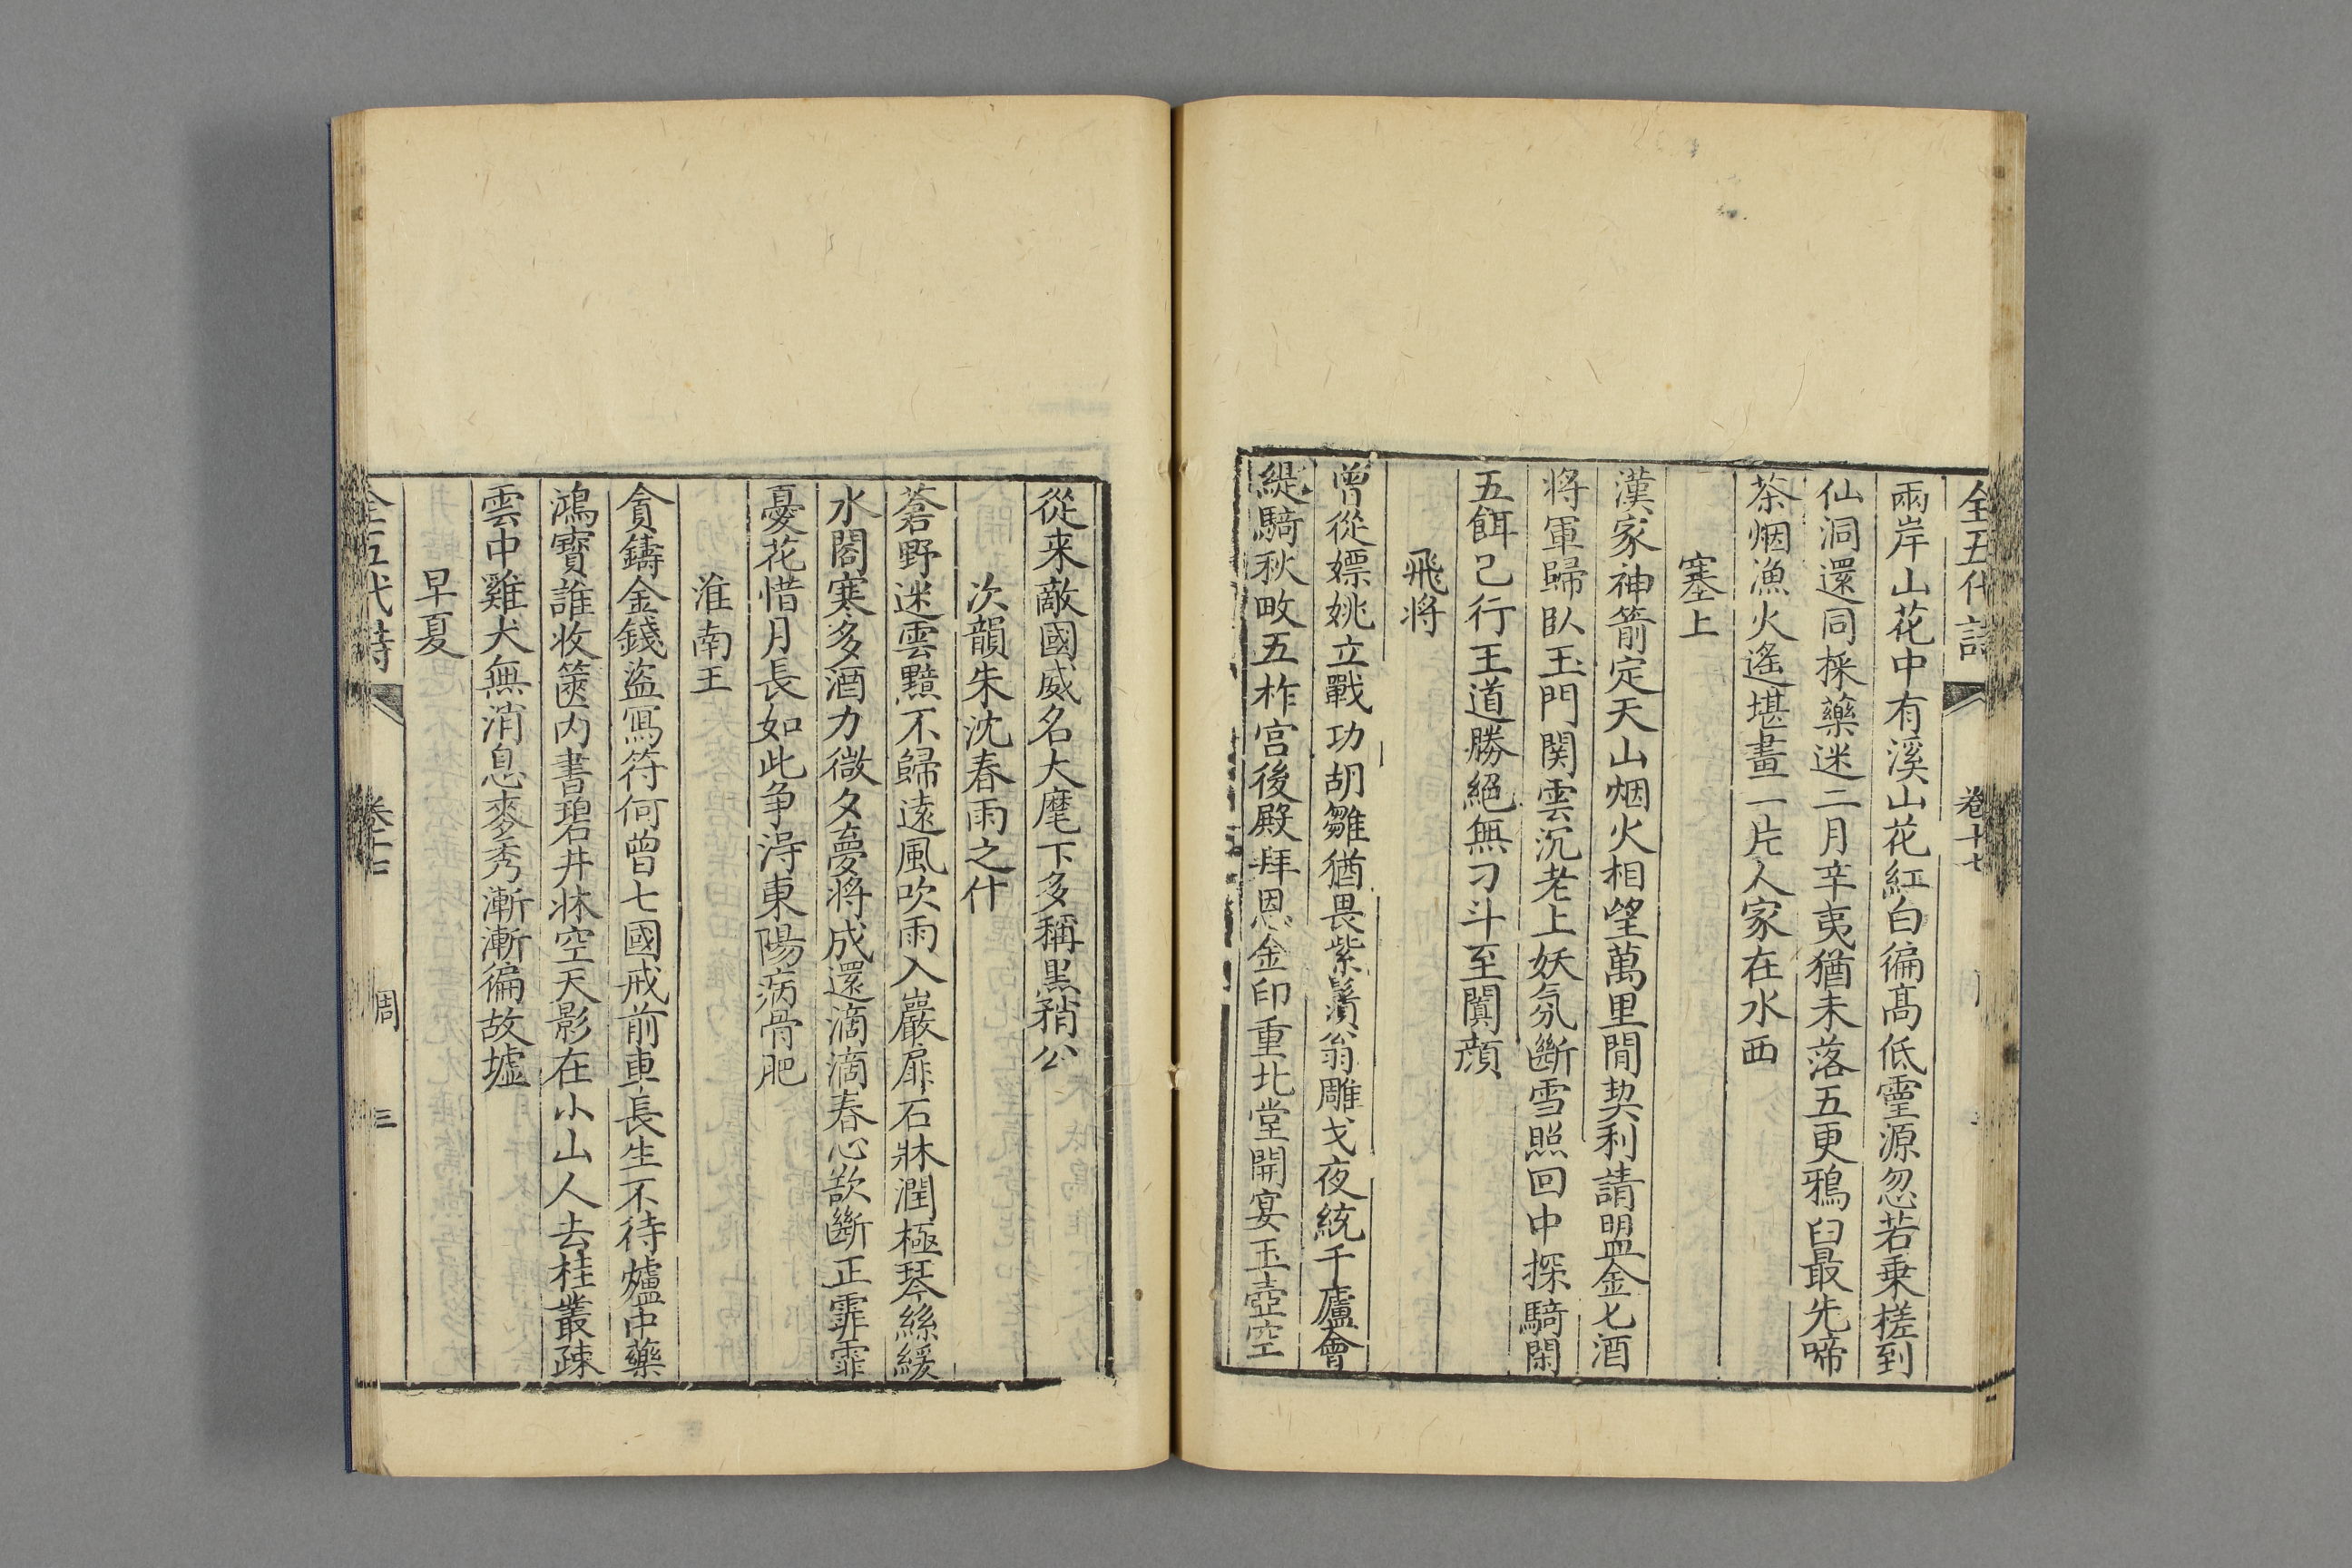 全五代詩 卷十七
兩岸山花中有溪山花紅白徧高低靈源忽若乗槎到
仙洞還同採藥迷二月辛夷猶未落五更鴉臼最先啼
茶烟漁火遙堪畫一片人家在水西
塞上
漢家神箭定天山烟火相望萬里間契利請盟金匕酒
将軍歸臥玉門関雲沉老上妖氛斷雪照回中探騎閑
五餌已行王道勝絕無刁斗至闐顔
飛将
曾從嫖姚立戰功胡雛猶畏紫髯翁雕戈夜統千廬會
緹騎秋畋五柞宫後殿拜恩金印重北堂開宴玉壺空
從来敵國威名大麾下多稱黒矟公
次韻朱沈春雨之什
蒼野迷雲黯不歸遠風吹雨入巖扉石牀潤極琴絲緩
水閣寒多酒力微夕夢将成還滴滴春心欲斷正霏霏
憂花惜月長如此争得東陽病骨肥
淮南王
貪鑄金錢盗寫符何曾七國戒前車長生不待爐中藥
鴻寳誰收篋内書碧井牀空天影在小山人去桂叢疎
雲中雞犬無消息麥秀漸漸徧故墟
早夏
全五代詩 卷十七 周 三